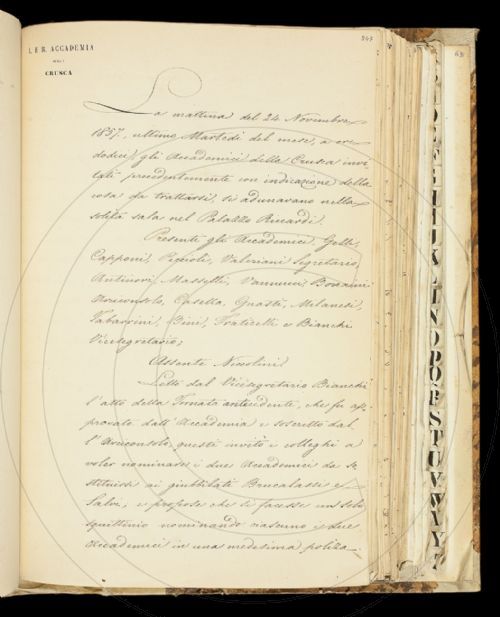 I. E R. ACCADEMIA
DELLA
CRUSCA
La mattina del 24 Novembre
1857, ultimo Martedì del mese, a ore
dodici, gli Accademici della Crusca invi
tati precedentemente con indicazione della
cosa da trattarsi, si adunavano nella
solita sala nel Palazzo Riccardi.
Presenti gli Accademici, Gelli,
Capponi, Valeriani Segretario,
Antinori, Masselli, Vannucci, Bonaini
Arciconsolo, Casella, Guasti, Milanesi,
Tabarrini, Bini, Fraticelli e Bianchi
Vicesegretario;
Assente Niccolini
Letto dal Vicesegretario Bianchi
l'atto della Tornata antecedente, che fu ap
provato dall'Accademia e soscritto dal
l'Arciconsolo, questi invitò i colleghi a
voler nominare i due Accademici da so
stituirsi ai giubbilati Brucalassi e
Salvi, e propose che si facesse un solo
squittinio nominando ciascuno i due
Accademici in una medesima polizza.
K
N
O
P
Q
R
S
T
U
V
W
Y
Z